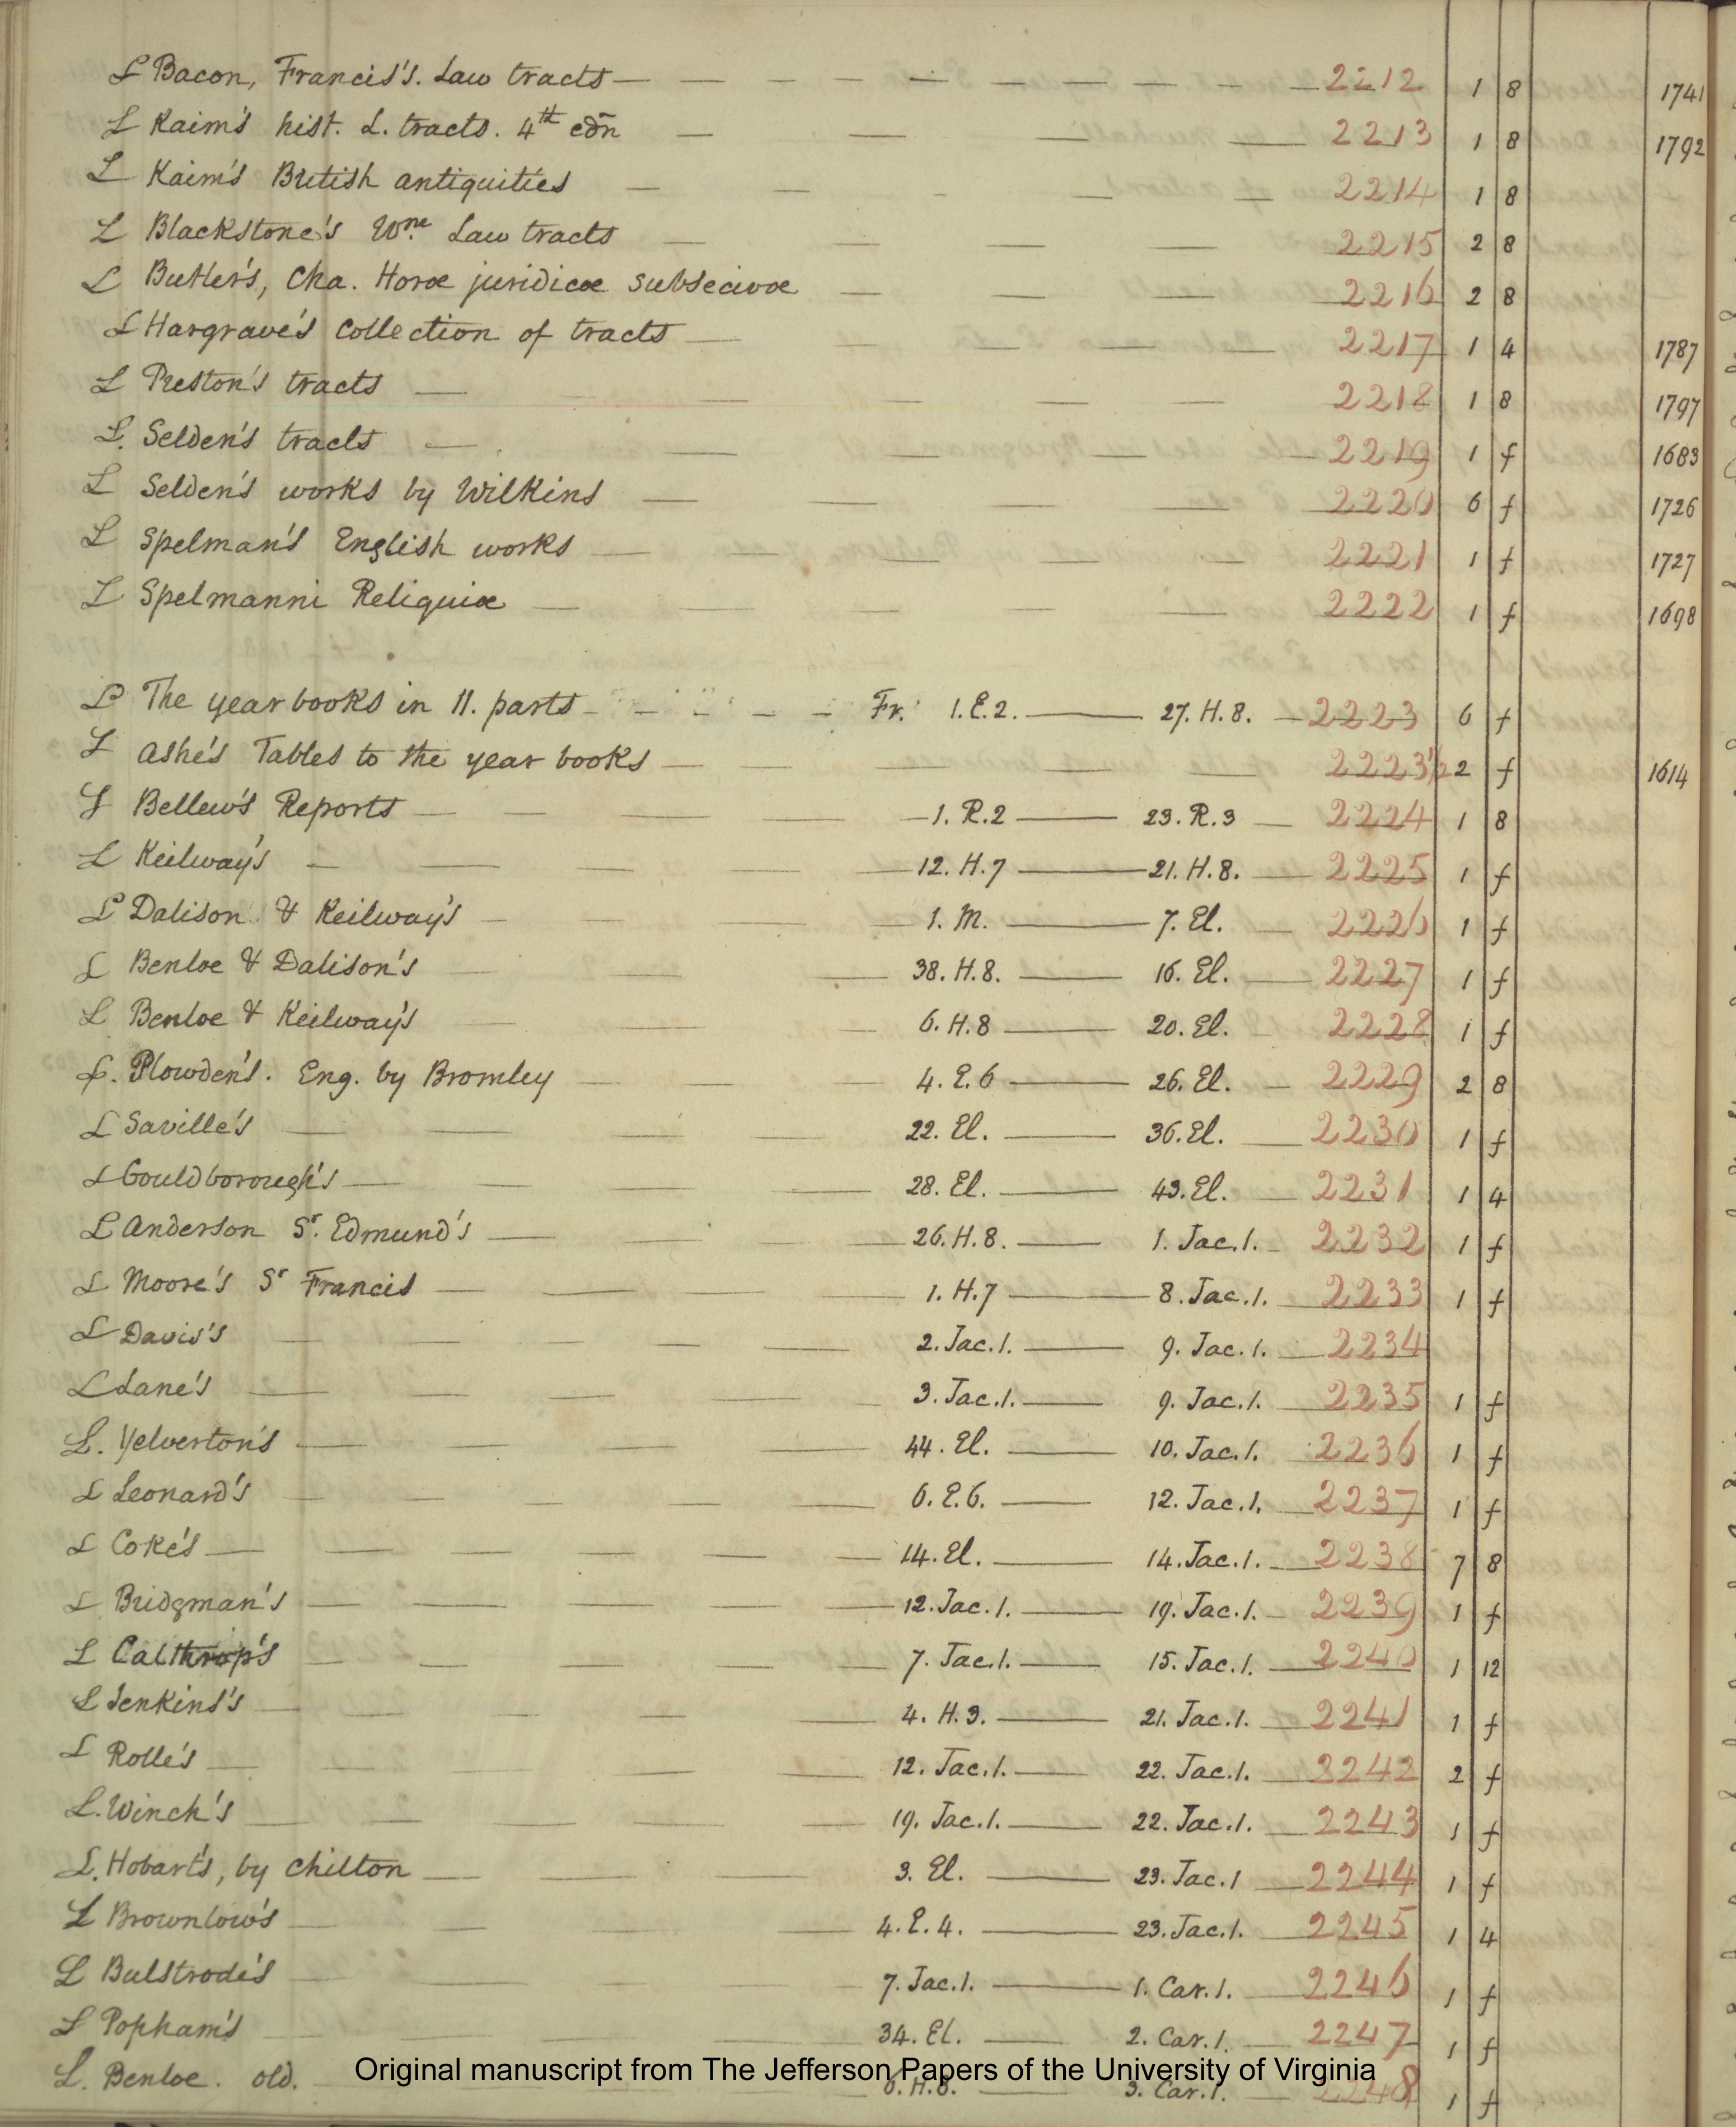 L Bacon, Francis's. Law tracts 2212 1 8 1741
L Kaim's hist. L. tracts. 4th edn 2213 1 8 1792
L Kaim's British antiquities 2214 1 8
L Blackstone's Wm. Law tracts 2215 2 8
L Butler's, Cha. Horæ juridicæ subsecivæ 2216 2 8
L Hargrave's collection of tracts 2217 1 4 1787
L Preston's tracts 2218 1 8 1797
L. Selden's tracts 2219 1 f 1683
L Selden's works by Wilkins 2220 6 f 1726
L Spelman's English works 2221 1 f 1727
L Spelmanni Reliquiæ 2222 1 f 1698
L The year books in 11. parts Fr. 1.E.2. 27. H.8. 2223 6 f
L Ashe's Tables to the year books 2223½ 2 f 1614
L Bellew's Reports 1. R.2 23. R.3 2224 1 8
L Keilway's 12. H.7 21. H.8. 2225 1 f
L Dalison & Keilway's 1. M. 7. El. 2226 1 f
L Benloe & Dalison's 38. H.8. 16. El. 2227 1 f
L Benloe & Keilway's 6. H.8 20. El. 2228 1 f
L. Plowden's. Eng. by Bromley 4. E.6 26. El. 2229 2 8
L Saville's 22. El. 36. El. 2230 1 f
L Gouldborough's 28. El. 43. El. 2231 1 4
L Anderson Sr. Edmund's 26. H.8. 1. Jac.1. 2232 1 f
L Moore's Sr Francis 1. H.7 8. Jac.1. 2233 1 f
L Davis's 2. Jac.1. 9. Jac.1. 2234
L Lane's 3. Jac.1. 9. Jac.1. 2235 1 f
L. Yelverton's 44. El. 10. Jac.1. 2236 1 f
L Leonard's 6. E.6. 12. Jac.1. 2237 1 f
L Coke's 14. El. 14. Jac.1. 2238 7 8
L Bridgman's 12. Jac.1. 19. Jac.1. 2239 1 f
L Calthrop's 7. Jac.1. 15. Jac.1. 2240 1 12
L Jenkins's 4. H.3. 21. Jac.1. 2241 1 f
L Rolle's 12. Jac.1. 22. Jac.1. 2242 2 f
L. Winch's 19. Jac.1. 22. Jac.1. 2243 1 f
L. Hobart's, by Chilton 3. El. 23. Jac.1 2244 1 f
L Brownlow's 4. E.4. 23. Jac.1. 2245 1 4
L Bulstrode's 7. Jac.1. 1. Car.1. 2246 1 f
L Popham's 34. El. 2. Car.1. 2247 1 f
L. Benloe. old. 6. H.8. 3. Car.1. 2248 1 f
Original manuscript from The Jefferson Papers of the University of Virginia